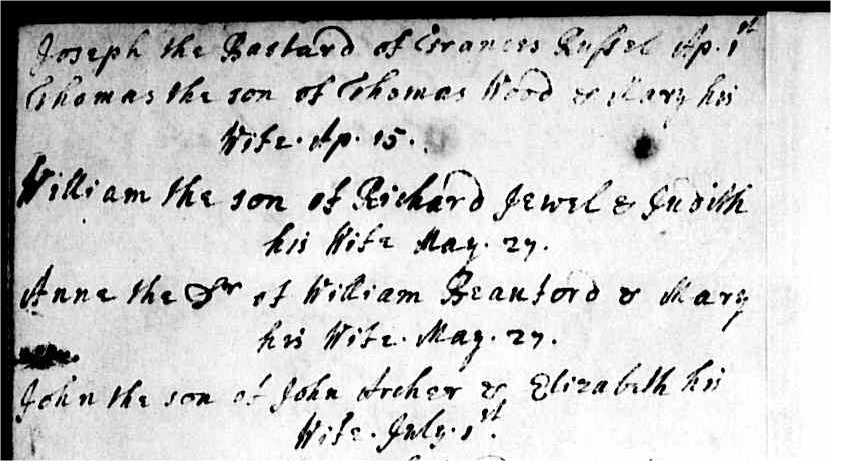 Joseph the Bastard of Frances Russel Ap. 1st
Thomas the son of Thomas Wood & Mary his
Wife. Ap. 15.
William the son of Richard Jewel & Judith
his Wife May. 27.
Anne the Dr of William Beauford & Mary
his Wife. May. 27.
John the son of John Archer & Elizabeth his
Wife. July. 1st.